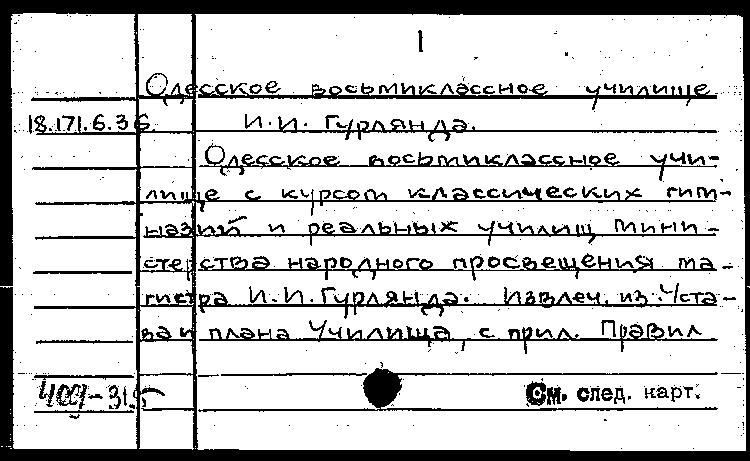 1
Одесское восьмиклассное училище
18.171.6.36. И.И. Гурлянда.
Одесское восьмиклассное учи-
лище с курсом классических гим-
назий и реальных училищ мини-
стерства народного просвещения ма-
гистра И.И. Гурлянда. Извлеч. из Уста-
ва и плана Училища, с прил. Правил
409-315
См. след. карт.